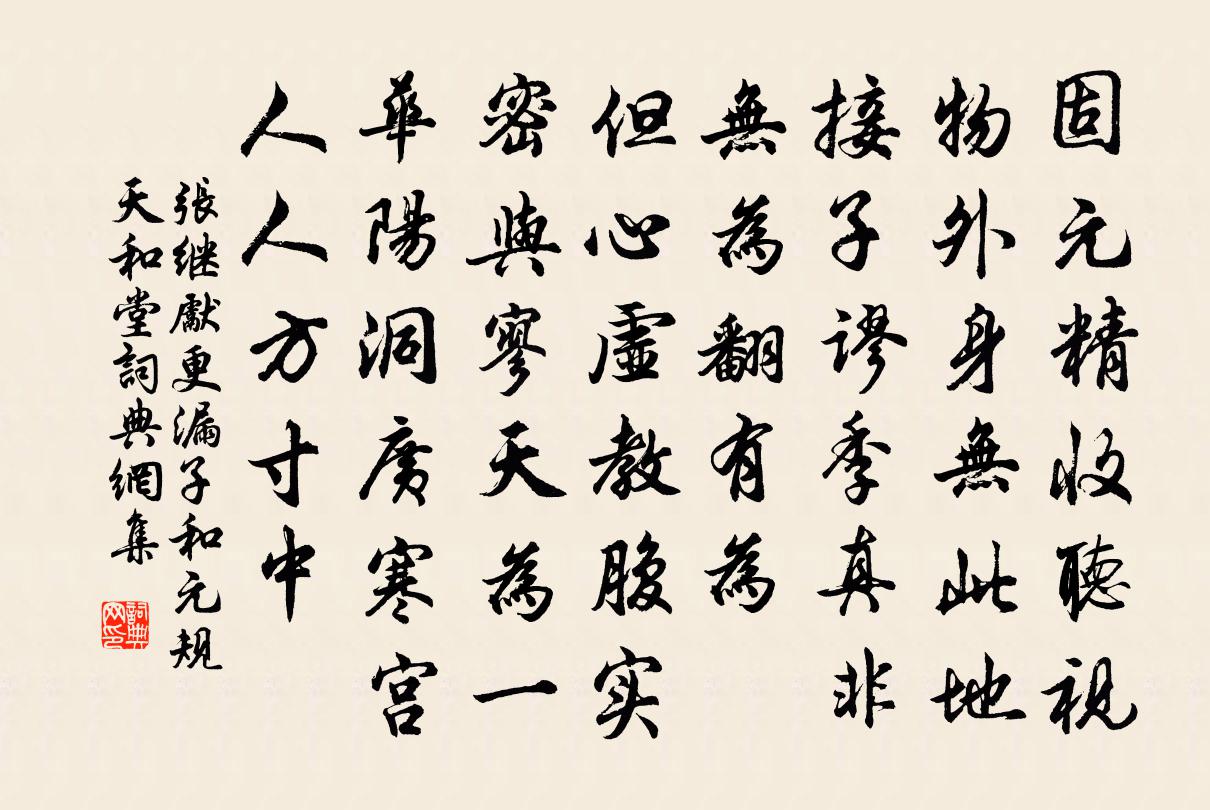 固元精收聽視
物外身無此地
接子謬季真非
無為翻有為
但心虛教腹实
密與寥天為一
華陽洞廣寒宫
人人方寸中
張继獻更漏子和元规
天和堂詞典網集
詞典網印